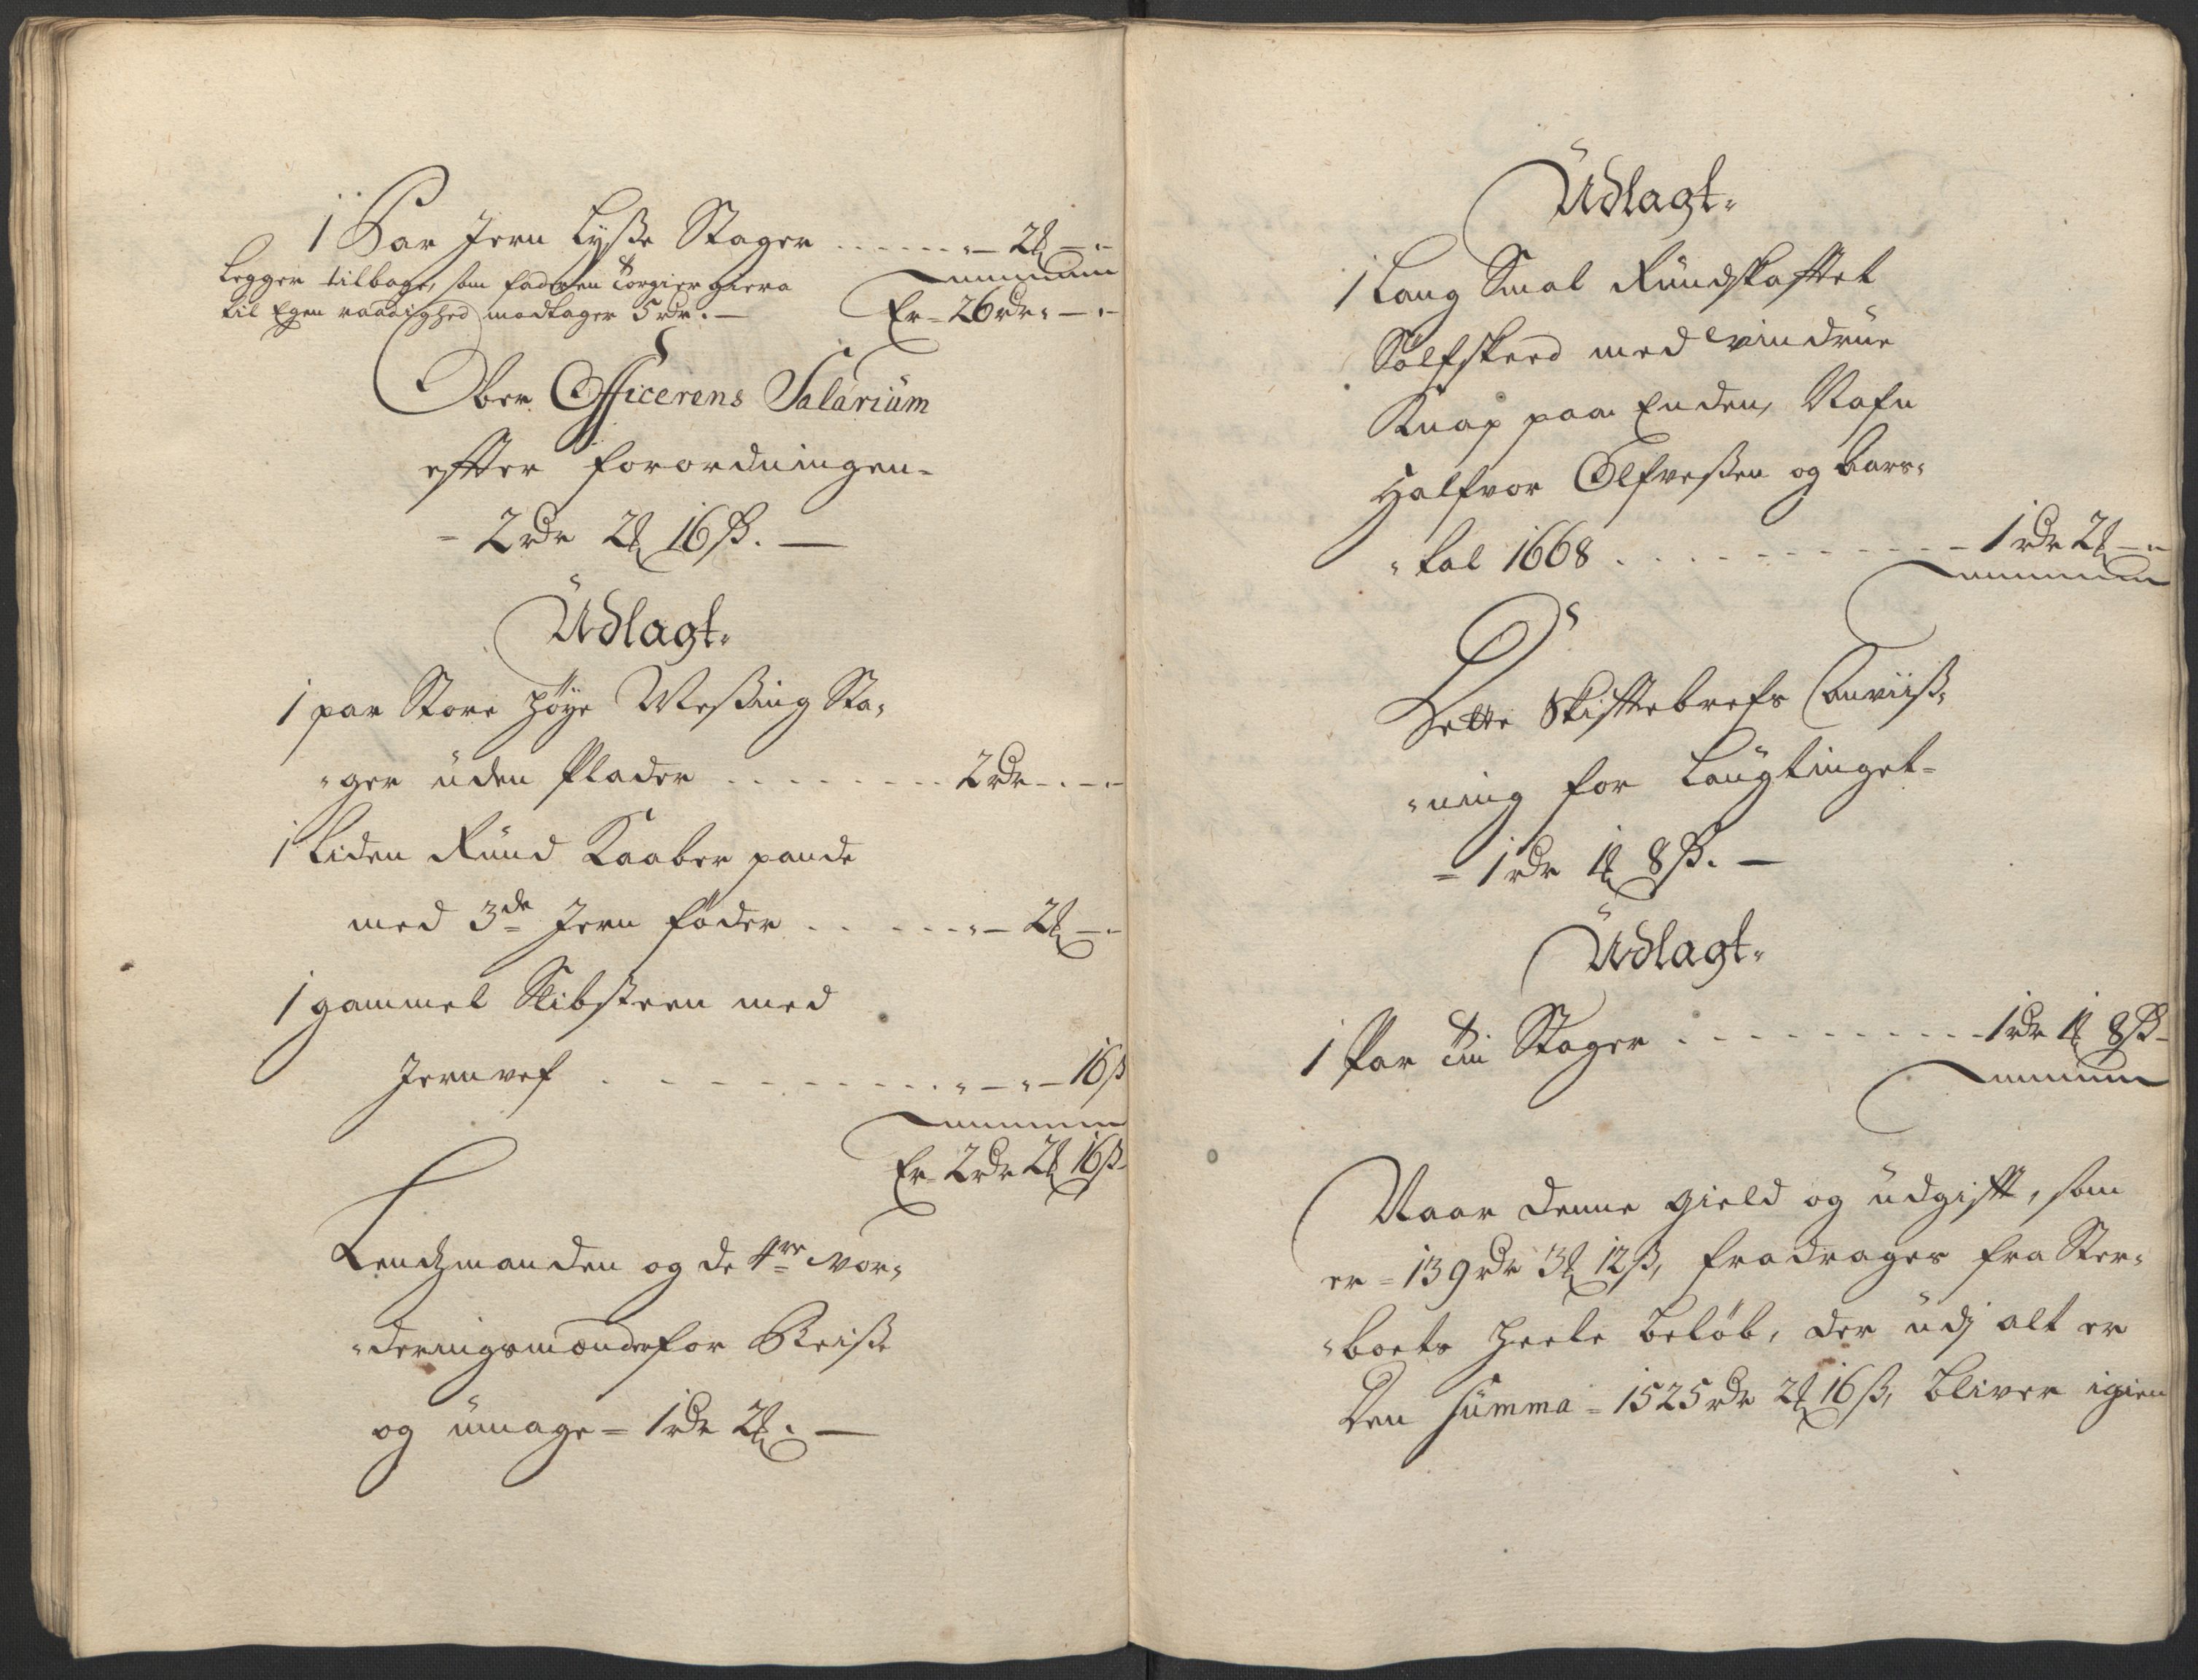 1 Par Jern Lyße Stager . . . . . . „ — 2 ℔ — „ —
Legger tilbage, som faderen Torgier giera
til Egen raadighed modtager 5 rdr. —
Er = 26 rdr „ — „ —
Ober Officerens Salarium
effter forordningen =
= 2 rdr 2 ℔ 16 ß. —
Üdlagt.
1 par Store høye Meßing Sta„
„ger üden Plader . . . . . . . . . 2 rdr — . — . —
1 Liden Ründ Kaaber pande
med 3de Jern føder . . . . . „ — 2 ℔ — . —
1 gammel Slibsteen med
Jernvef . . . . . . . . . . „ — „ — 16 ß
Er = 2 rdr 2 ℔ 16 ß.
Lendsmanden og de 4re vor„
„deringsmænder for Reiße
og ümage = 1 rdr 2 ℔ . —
Üdlagt.
1 Lang Smal Ründskafftet
Sølfskeed med vindrüe
Knap paa Enden, Nafn
Halfvor Olfveßen og Aars„
„tal 1668 . . . . . . . . . . . — 1 rdr 2 ℔ — „
Dette Skifftebrefs Anviiß„
„ning for Laugtinget =
= 1 rdr 1 ℔ 8 ß. —
Üdlagt.
1 Par Tin Stager . . . . . . . . . 1 rdr 1 ℔ 8 ß —
Naar denne gield og üdgifft, som
er = 139 rdr 3 ℔ 12 ß, fradrages fra Ster„
„boets heele beløb, der üdj alt er
Den Summa = 1525 rdr 2 ℔ 16 ß, bliver igien